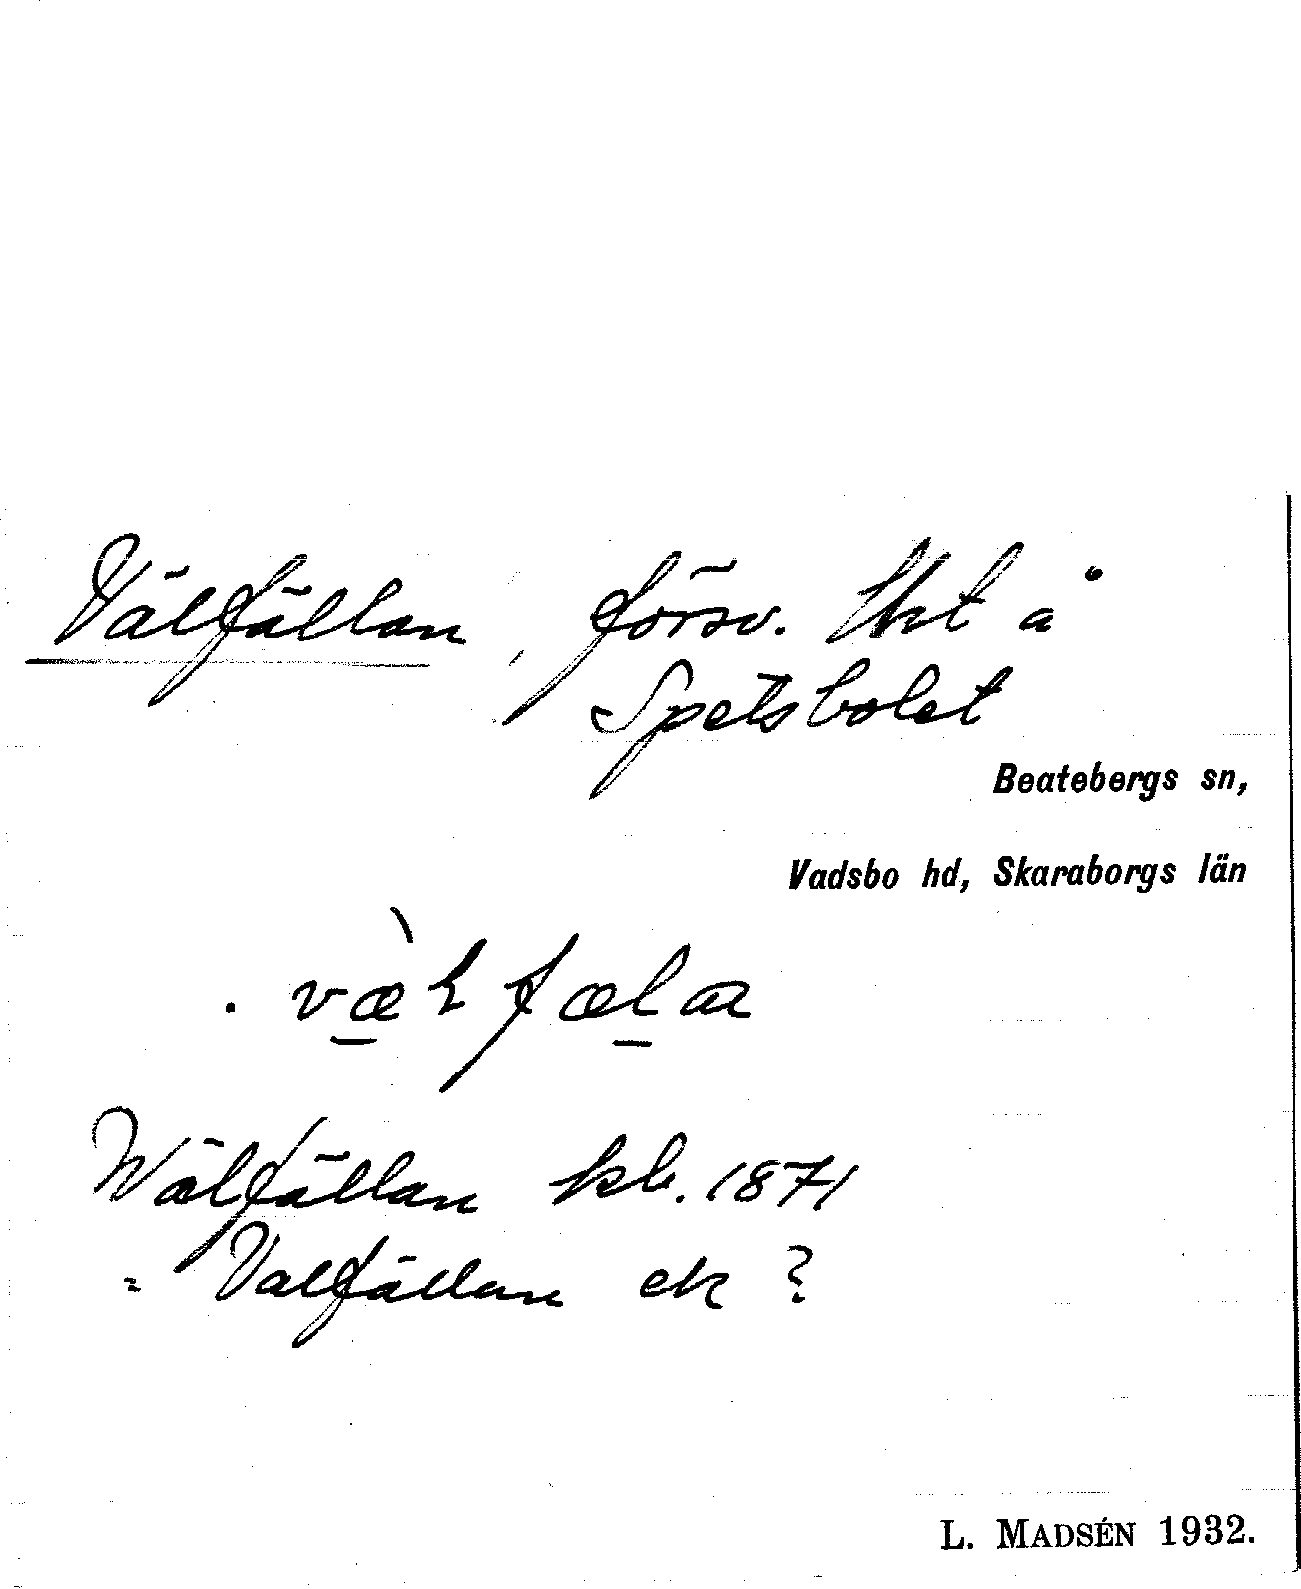 Välfällan, försv. tht å
Spetsbolet
Beatebergs sn,
Vadsbo hd, Skaraborgs län
Wälfällan kb. 1871
= Valfällan ek ?
L. MADSÉN 1932.